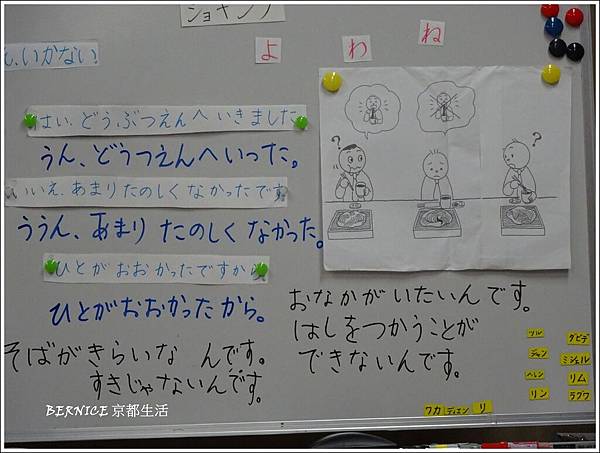 ショッピング
よ
わ
ね
ん、いかない
はい、どうぶつえんへいきました
うん、どうつえんへいった。
いいえ、あまりたのしくなかったです。
ううん、あまり たのしく なかった。
ひとがおおかったですから
ひとがおおかったから。
そばがきらいな んです。
すきじゃないんです。
おなかがいたいんです。
はしをつかうことが
できないんです。
?
?
ツル
ジャン
ヘレン
リン
ダビデ
ミシェル
リム
ラグワ
ワカ
ティエン
リ
BERNICE 京都生活